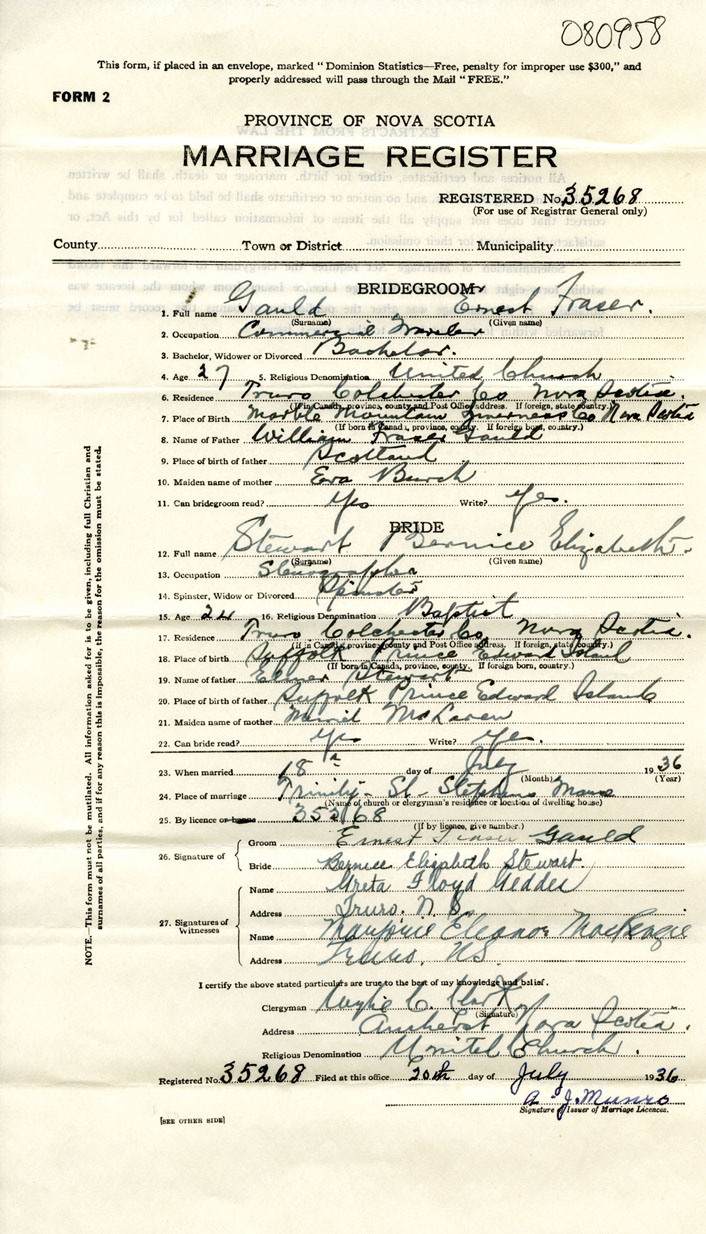 080958
This form, if placed in an envelope, marked "Dominion Statistics—Free, penalty for improper use $300," and
properly addressed will pass through the Mail "FREE."
FORM 2
PROVINCE OF NOVA SCOTIA
MARRIAGE REGISTER
REGISTERED No. 35268
(For use of Registrar General only)
County Town or District Municipality
BRIDEGROOM
1. Full name Gauld Ernest Fraser.
(Surname) (Given name)
2. Occupation Commercial Traveler
3. Bachelor, Widower or Divorced Bachelor.
4. Age 27 5. Religious Denomination United Church
6. Residence Truro Colchester Co Nova Scotia.
(If in Canada, province, county and Post Office address. If foreign, state country.)
7. Place of Birth Marble Mountain Inverness Co Nova Scotia
(If born in Canada, province, county. If foreign born, country.)
8. Name of Father William Fraser Gauld
9. Place of birth of father Scotland
10. Maiden name of mother Eva Burch
11. Can bridegroom read? Yes Write? Yes.
BRIDE
12. Full name Stewart Bernice Elizabeth.
(Surname) (Given name)
13. Occupation Stenographer
14. Spinster, Widow or Divorced Spinster
15. Age 24 16. Religious Denomination Baptist
17. Residence Truro Colchester Co, Nova Scotia.
(If in Canada, province county and Post Office address. If foreign, state country.)
18. Place of birth Suffolk Prince Edward Island
(If born in Canada, province, county. If foreign, country.)
19. Name of father Elmer Stewart
20. Place of birth of father Suffolk Prince Edward Island
21. Maiden name of mother McLaren
22. Can bride read? Yes Write? Yes.
23. When married 18th day of July 1936
(Month) (Year)
24. Place of marriage Trinity - St. Stephens Manse
(Name of church or clergyman's residence or location of dwelling house)
25. By licence or banns 35268
(If by licence, give number.)
26. Signature of Groom Ernest Fraser Gauld
Bride Bernice Elizabeth Stewart.
27. Signatures of Witnesses Name Greta Floyd Geddes
Address Truro. N.S.
Name Marjorie Eleanor MacKenzie
Address Truro, NS
I certify the above stated particulars are true to the best of my knowledge and belief.
Clergyman Wylie C. Clark
(Signature)
Address Amherst Nova Scotia.
Religious Denomination United Church.
Registered No. 35268 Filed at this office 20th day of July 1936
A. J. Munro
Signature of Issuer of Marriage Licences.
[SEE OTHER SIDE]
NOTE.—This form must not be mutilated. All information asked for is to be given, including full Christian and
surnames of all parties, and if for any reason this is impossible, the reason for the omission must be stated.